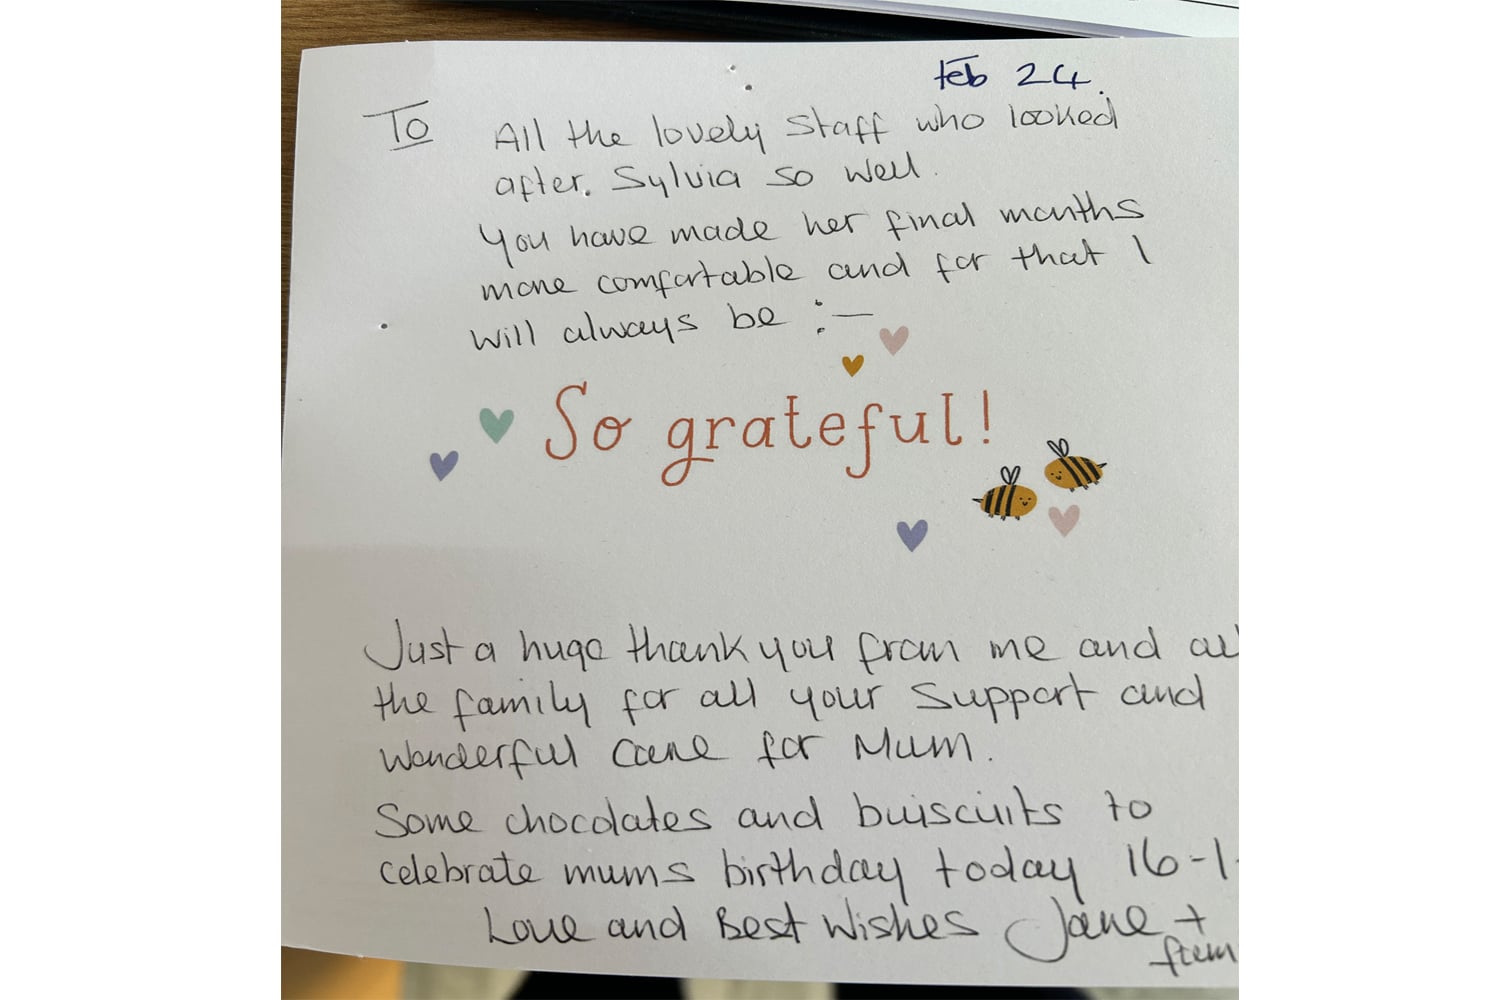 Feb 24.
To All the lovely Staff who looked
after. Sylvia so well.
You have made her final months
more comfortable and for that I
will always be :—
So grateful!
Just a huge thank you from me and all
the family for all your Support and
wonderful care for Mum.
Some chocolates and buiscuits to
celebrate mums birthday today 16-1-
Love and Best Wishes Jane +